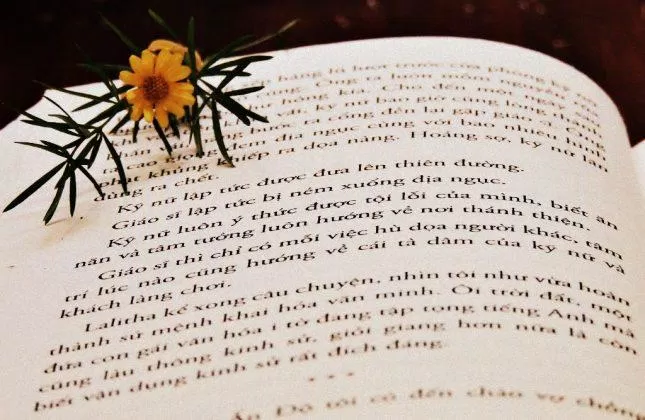 hàng là lượt trước cửa phòng kỹ nữ
Ông ta luôn mồm nguyền rủa
kia. Cho đến một ngày
vặt, kỹ nữ bao giờ cũng
ta cống đến lại gặp giáo sĩ. Ông
đem địa ngục cùng với bao nhiêu hình
phạt khủng khiếp ra dọa nàng. Hoảng sợ, kỹ nữ lăn
đùng ra chết.
Kỹ nữ lập tức được đưa lên thiên đường.
Giáo sĩ lập tức bị ném xuống địa ngục.
Kỹ nữ luôn ý thức được tội lỗi của mình, biết ăn
năn và tâm tưởng luôn hướng về nơi thánh thiện.
Giáo sĩ thì chỉ có mỗi việc hù dọa người khác, tâm
trí lúc nào cũng hướng về cái tà dâm của kỹ nữ và
khách làng chơi.
Lalitha kể xong câu chuyện, nhìn tôi như vừa hoàn
thành sứ mệnh khai hóa văn minh. Ôi trời đất, một
đứa con gái văn hóa i tờ đang tập tọng tiếng Anh mà
cũng làu thông kinh sử, giỏi giang hơn nữa là còn
biết vận dụng kinh sử rất đích đáng.
* * *
Ấn Độ tôi có đến chào vợ chồng